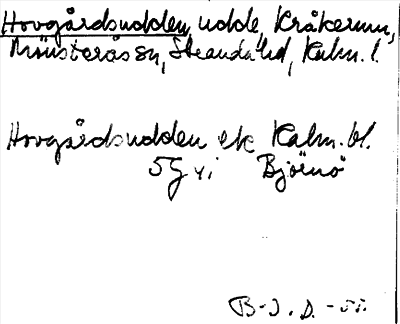 Hovgårdsudden, udde, Kråkerum,
Mönsterås sn, Stranda hd, Kalm. l.
Hovgårdsudden ek Kalm. bl.
5G vi Björnö
B-J. D. -55